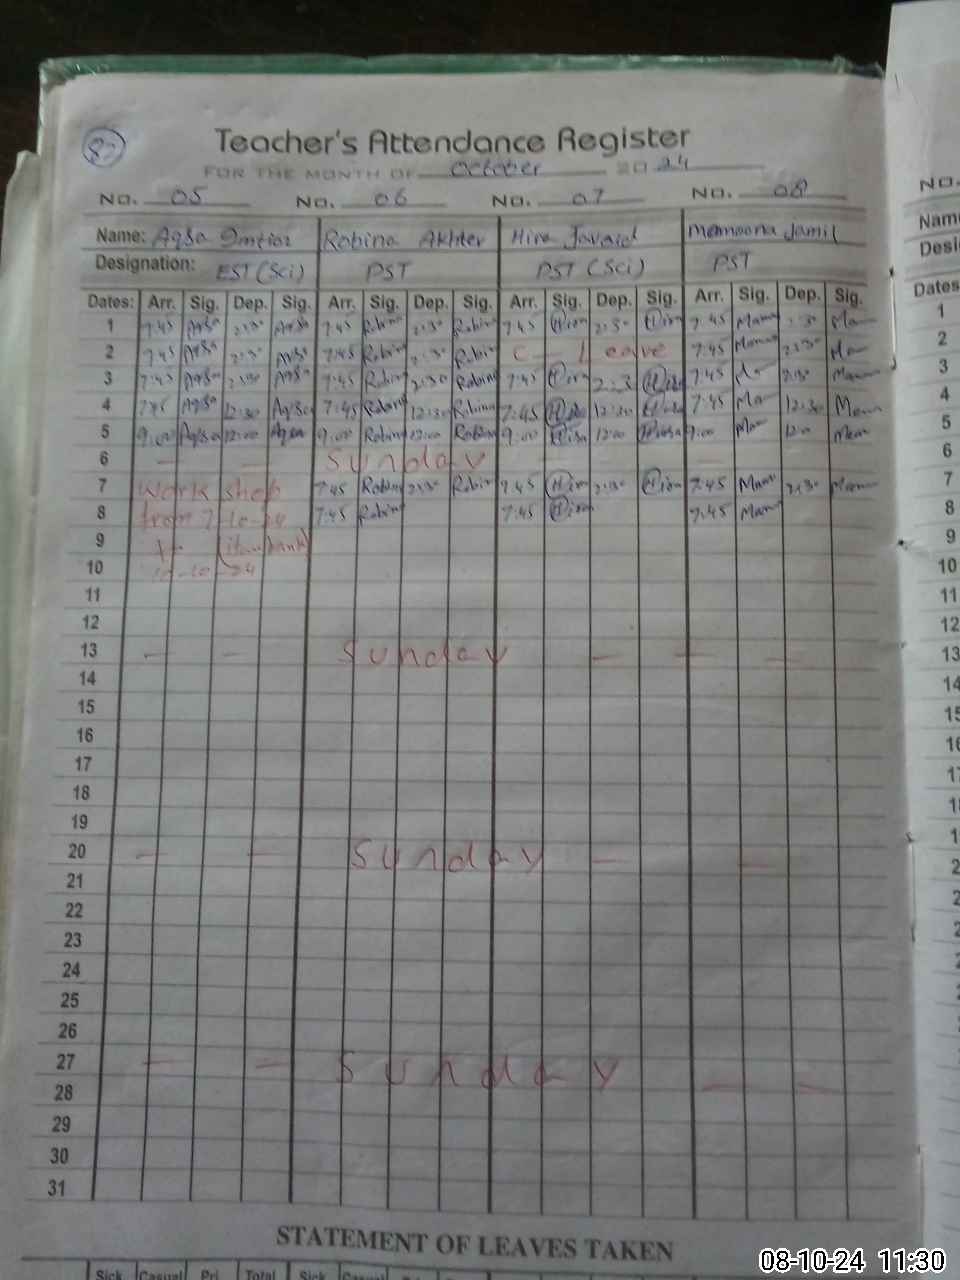 Teacher's Attendance Register
FOR THE MONTH OF October 2024
No. 05 No. 06 No. 07 No. 08
Name: Aqsa Imtiaz Robina Akhter Hira Javaid Mamoona Jamil
Designation: EST (Sci) PST PST (Sci) PST
Dates: Arr. Sig. Dep. Sig. Arr. Sig. Dep. Sig. Arr. Sig. Dep. Sig. Arr. Sig. Dep. Sig.
1 7:45 Aqsa 2:30 Aqsa 7:45 Robina 2:30 Robina 7:45 Hira 2:30 Hira 7:45 Mam 2:30
2 7:45 Aqsa 2:30 Aqsa 7:45 Robina 2:30 Robina C - Leave 7:45 2:30
3 7:45 Aqsa 2:30 Aqsa 7:45 Robina 2:30 Robina 7:45 Hira 2:3 7:45 2:30
4 7:45 Aqsa 12:30 Aqsa 7:45 Robina 12:30 Robina 7:45 12:30 7:45 12:30
5 9:00 Aqsa 12:00 Aqsa 9:00 Robina 12:00 Robina 9:00 12:00 9:00 12:00
6 — — Sunday
7 Work shop 7:45 Robina 2:30 Robina 7:45 Hira 2:30 Hira 7:45 Mam 2:30
8 from 7-10-24 7:45 Robina 7:45 Hira 7:45 Mam
9 to
10 10-10-24
11
12
13 — — Sunday — — —
14
15
16
17
18
19
20 — — Sunday — —
21
22
23
24
25
26
27 — — Sunday — —
28
29
30
31
STATEMENT OF LEAVES TAKEN
Sick Casual Pri. Total Sick Casual
No.
Name
Desi
Dates
1
2
3
4
5
6
7
8
9
10
11
12
13
14
15
08-10-24 11:30